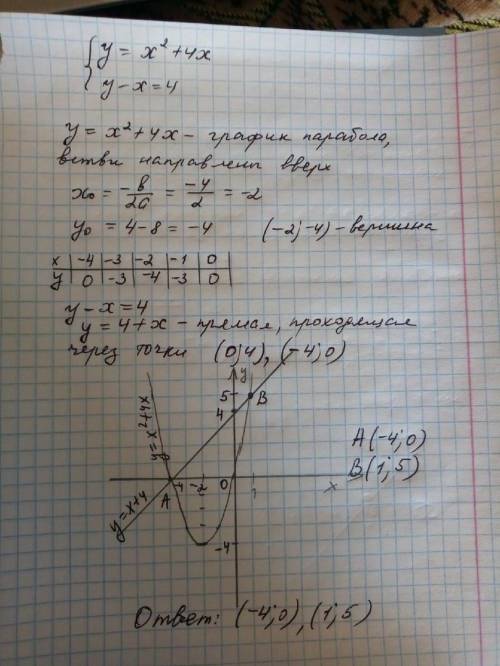 { y = x² + 4x
y - x = 4
y = x² + 4x - график парабола,
ветви направлены вверх
x₀ = -b/2a = -4/2 = -2
y₀ = 4 - 8 = -4 (-2; -4) - вершина
x | -4 | -3 | -2 | -1 | 0
y | 0 | -3 | -4 | -3 | 0
y - x = 4
y = 4 + x - прямая, проходящая
через точки (0; 4), (-4; 0)
y
5 B
4
y = x² + 4x
A(-4; 0)
B(1; 5)
A -4 -2 0 1 x
y = x + 4
-4
Ответ: (-4; 0), (1; 5)